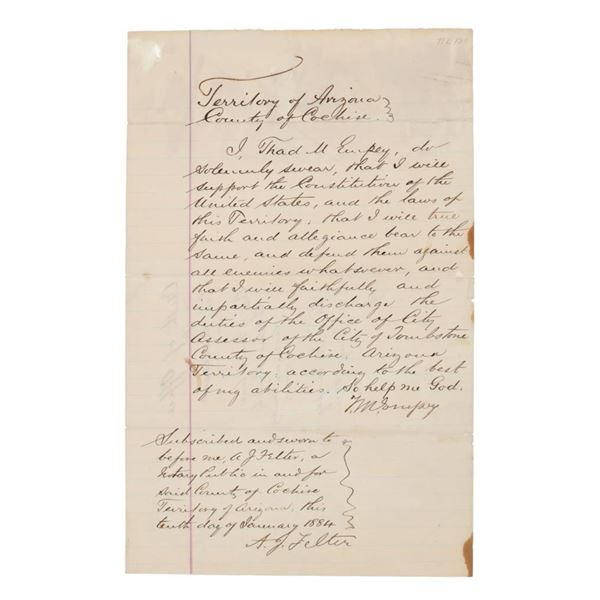 Territory of Arizona
County of Cochise.
I, Thad M Empey, do
Solemnly swear, that I will
support the Constitution of the
United States, and the laws of
this Territory; that I will true
faith and allegiance bear to the
same, and defend them against
all enemies whatsoever, and
that I will faithfully and
impartially discharge the
duties of the Office of City
Assessor of the City of Tombstone
County of Cochise, Arizona
Territory: according to the best
of my abilities. So help me God.
T. M. Empey
Subscribed and sworn to
before me, A J Felter, a
Notary Public in and for
said County of Cochise
Territory of Arizona, this
tenth day of January 1884
A. J. Felter